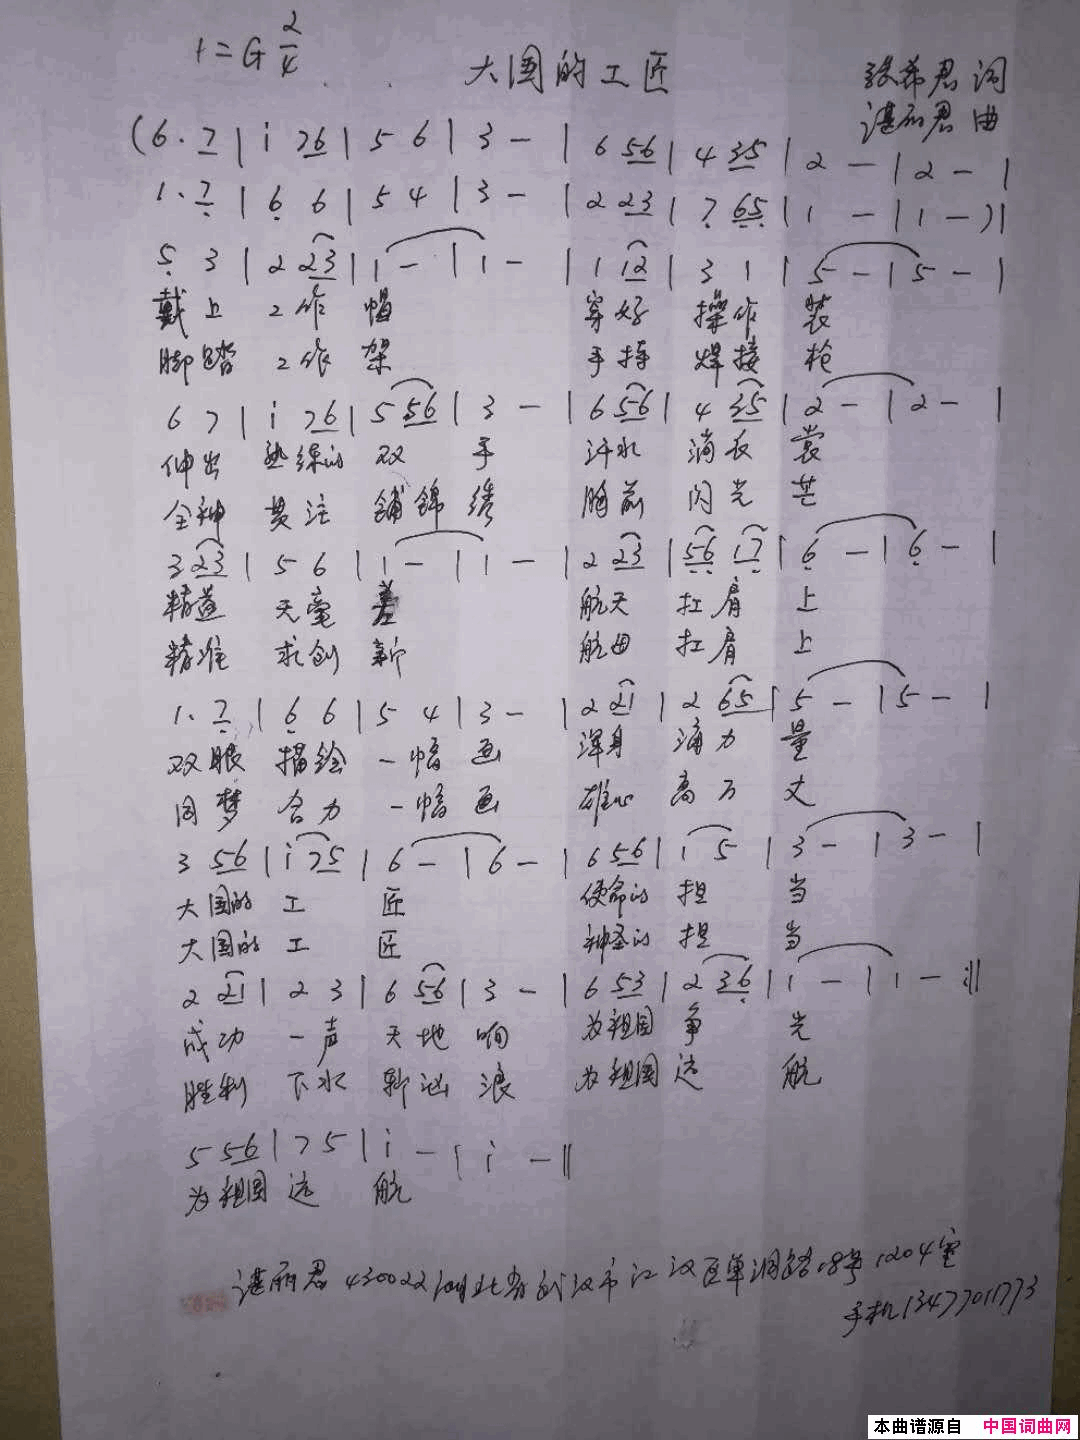 1=G 2/4
大国的工匠
张希君 词
谌丽君 曲
(6. 7 | i 76 | 5 6 | 3 - | 6 56 | 4 35 | 2 - | 2 - |
1. 7 | 6 6 | 5 4 | 3 - | 2 23 | 7 65 | 1 - | 1 -) |
5 3 | 2 23 | 1 - | 1 - | 1 12 | 3 1 | 5 - | 5 - |
戴上 工作 帽 穿好 操作 装
脚踏 工作 架 手持 焊接 枪
6 7 | i 76 | 5 56 | 3 - | 6 56 | 4 35 | 2 - | 2 - |
伸出 熟练的 双 手 汗水 滴衣 裳
全神 贯注 铺锦 绣 胸前 闪光 芒
3 23 | 5 6 | 1 - | 1 - | 2 23 | 56 17 | 6 - | 6 - |
精益 无毫 差 航天 扛肩 上
精准 求创 新 航母 扛肩 上
1. 7 | 6 6 | 5 4 | 3 - | 2 21 | 2 65 | 5 - | 5 - |
双眼 描绘 一幅 画 浑身 涌力 量
同梦 合力 一幅 画 雄心 高万 丈
3 56 | i 75 | 6 - | 6 - | 6 56 | 1 5 | 3 - | 3 - |
大国的 工 匠 使命的 担 当
大国的 工 匠 神圣的 担 当
2 21 | 2 3 | 6 56 | 3 - | 6 53 | 2 36 | 1 - | 1 - :||
成功 一声 天地 响 为祖国 争 光
胜利 下水 斩汹 浪 为祖国 远 航
5 56 | 7 5 | i - | i - ||
为祖国 远 航
谌丽君 430022 湖北省武汉市江汉区单洞路18号1204室
手机13477011773
本曲谱源自 中国词曲网